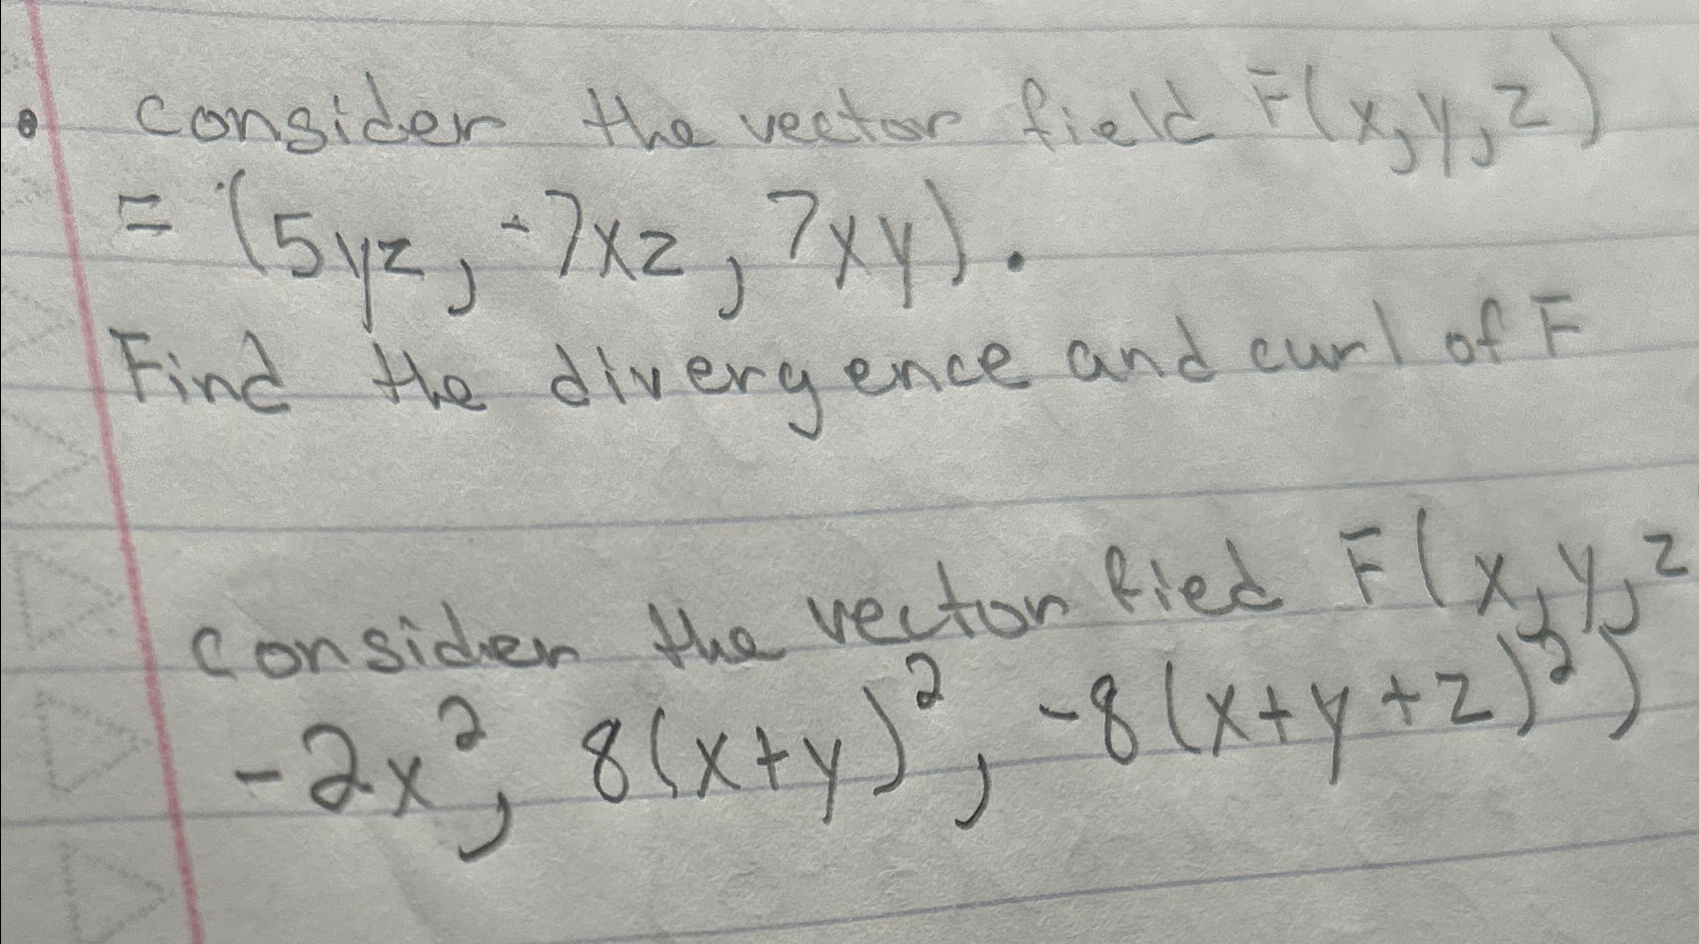 consider the vector field F(x,y,z)
= (5yz, -7xz, 7xy).
Find the divergence and curl of F
consider the vector fied F(x,y,z
-2x², 8(x+y)², -8(x+y+z)²)